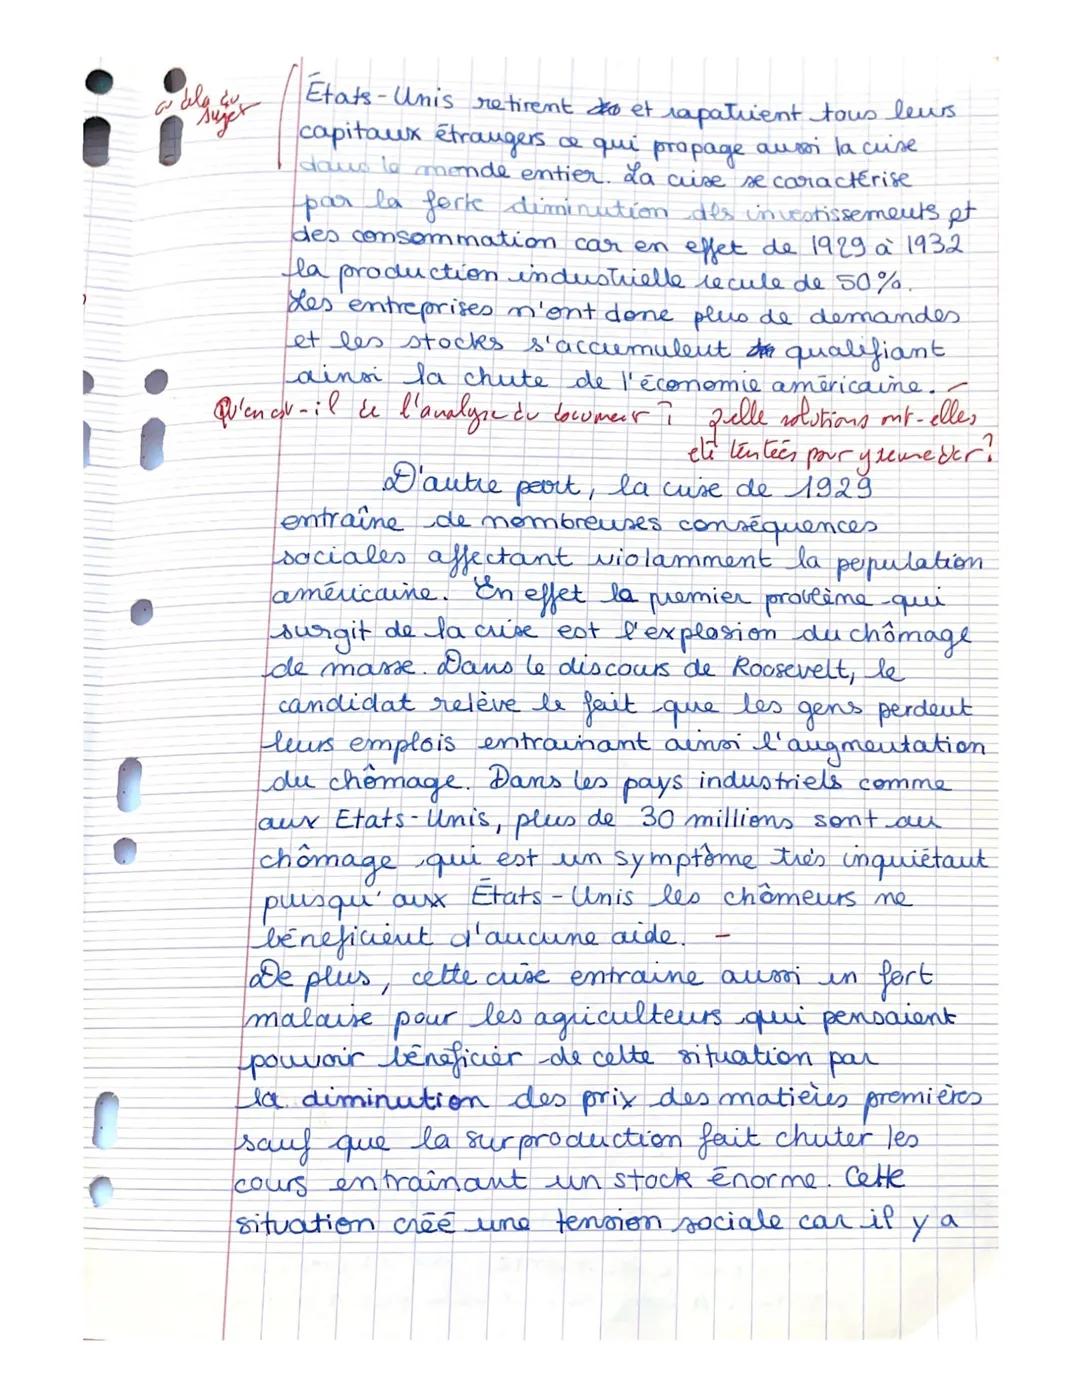 au delà du
sujet
États-Unis retirent et rapatrient tous leurs
capitaux étrangers ce qui propage aussi la crise
dans le monde entier. La crise se caractérise
par la forte diminution des investissements et
des consommation car en effet de 1929 à 1932
la production industrielle recule de 50%.
Les entreprises n'ont donc plus de demandes
et les stocks s'accumulent qualifiant
ainsi la chute de l'économie américaine.
Qu'en est-il de l'analyse du document ? quelle solutions ont-elles
été tentées pour y remédier ?
D'autre part, la crise de 1929
entraîne de nombreuses conséquences
sociales affectant violamment la population
américaine. En effet la premier problème qui
surgit de la crise est l'explosion du chômage
de masse. Dans le discours de Roosevelt, le
candidat relève le fait que les gens perdent
leurs emplois entrainant ainsi l'augmentation
du chômage. Dans les pays industriels comme
aux Etats-Unis, plus de 30 millions sont au
chômage qui est un symptôme très inquiétant
puisqu'aux États-Unis les chômeurs ne
bénéficient d'aucune aide.
De plus, cette crise entraine aussi un fort
malaise pour les agriculteurs qui pensaient
pouvoir bénéficier de cette situation par
la diminution des prix des matières premières
sauf que la surproduction fait chuter les
cours entraînant un stock énorme. Cette
situation créé une tension sociale car il y a